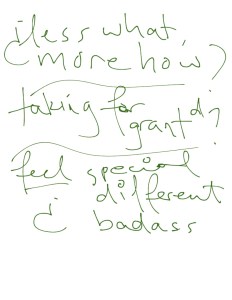 less what,
more how?
taking for
grantd?
feel special
different
& badass